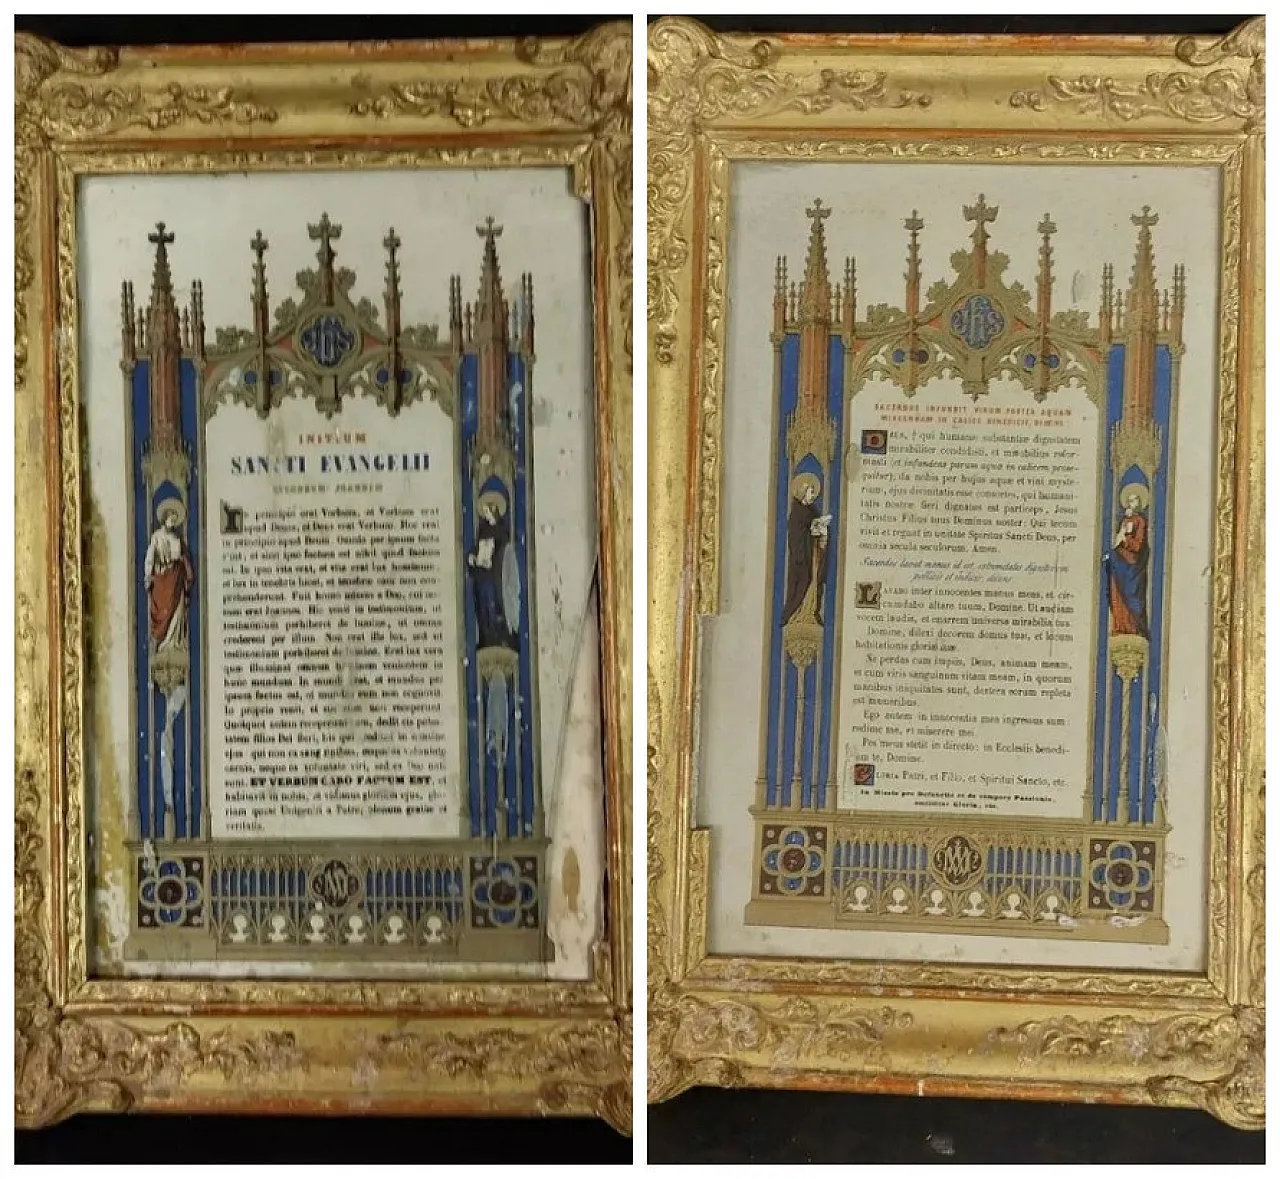 IHS
INITIUM
SANCTI EVANGELII
SECUNDUM JOANNEM
In principio erat Verbum, et Verbum erat
apud Deum, et Deus erat Verbum. Hoc erat
in principio apud Deum. Omnia per ipsum facta
sunt, et sine ipso factum est nihil quod factum
est. In ipso vita erat, et vita erat lux hominum,
et lux in tenebris lucet, et tenebræ eam non com-
prehenderunt. Fuit homo missus a Deo, cui no-
men erat Joannes. Hic venit in testimonium, ut
testimonium perhiberet de lumine, ut omnes
crederent per illum. Non erat ille lux, sed ut
testimonium perhiberet de lumine. Erat lux vera
quæ illuminat omnem hominem venientem in
hunc mundum. In mundo erat, et mundus per
ipsum factus est, et mundus eum non cognovit.
In propria venit, et sui eum non receperunt
Quotquot autem receperunt eum, dedit eis potes-
tatem filios Dei fieri, his qui credunt in nomine
ejus qui non ex sanguinibus, neque ex voluntate
carnis, neque ex voluntate viri, sed ex Deo nati
sunt. ET VERBUM CARO FACTUM EST, et
habitavit in nobis, et vidimus gloriam ejus, glo-
riam quasi Unigeniti a Patre, plenum gratiæ et
veritatis.
IHS
SACERDOS INFUNDIT VINUM POSTEA AQUAM
MINIMUM IN CALICE BENEDICIT, DICENS
DEUS, † qui humanæ substantiæ dignitatem
mirabiliter condidisti, et mirabilius refor-
masti (et infundens parum aquæ in calicem prose-
quitur), da nobis per hujus aquæ et vini myste-
rium, ejus divinitatis esse consortes, qui humani-
tatis nostræ fieri dignatus est particeps, Jesus
Christus Filius tuus Dominus noster: Qui tecum
vivit et regnat in unitate Spiritus Sancti Deus, per
omnia sæcula sæculorum. Amen.
Sacerdos lavat manus id est, extremitates digitorum
pollicis et indicis, dicens
LAVABO inter innocentes manus meas, et cir-
cumdabo altare tuum, Domine. Ut audiam
vocem laudis, et enarrem universa mirabilia tua.
Domine, dilexi decorem domus tuæ, et locum
habitationis gloriæ tuæ.
Ne perdas cum impiis, Deus, animam meam,
et cum viris sanguinum vitam meam, in quorum
manibus iniquitates sunt, dextera eorum repleta
est muneribus.
Ego autem in innocentia mea ingressus sum:
redime me, et miserere mei.
Pes meus stetit in directo: in Ecclesiis benedi-
cam te, Domine.
GLORIA Patri, et Filio, et Spiritui Sancto, etc.
In Missis pro Defunctis et de tempore Passionis,
omittitur Gloria, etc.